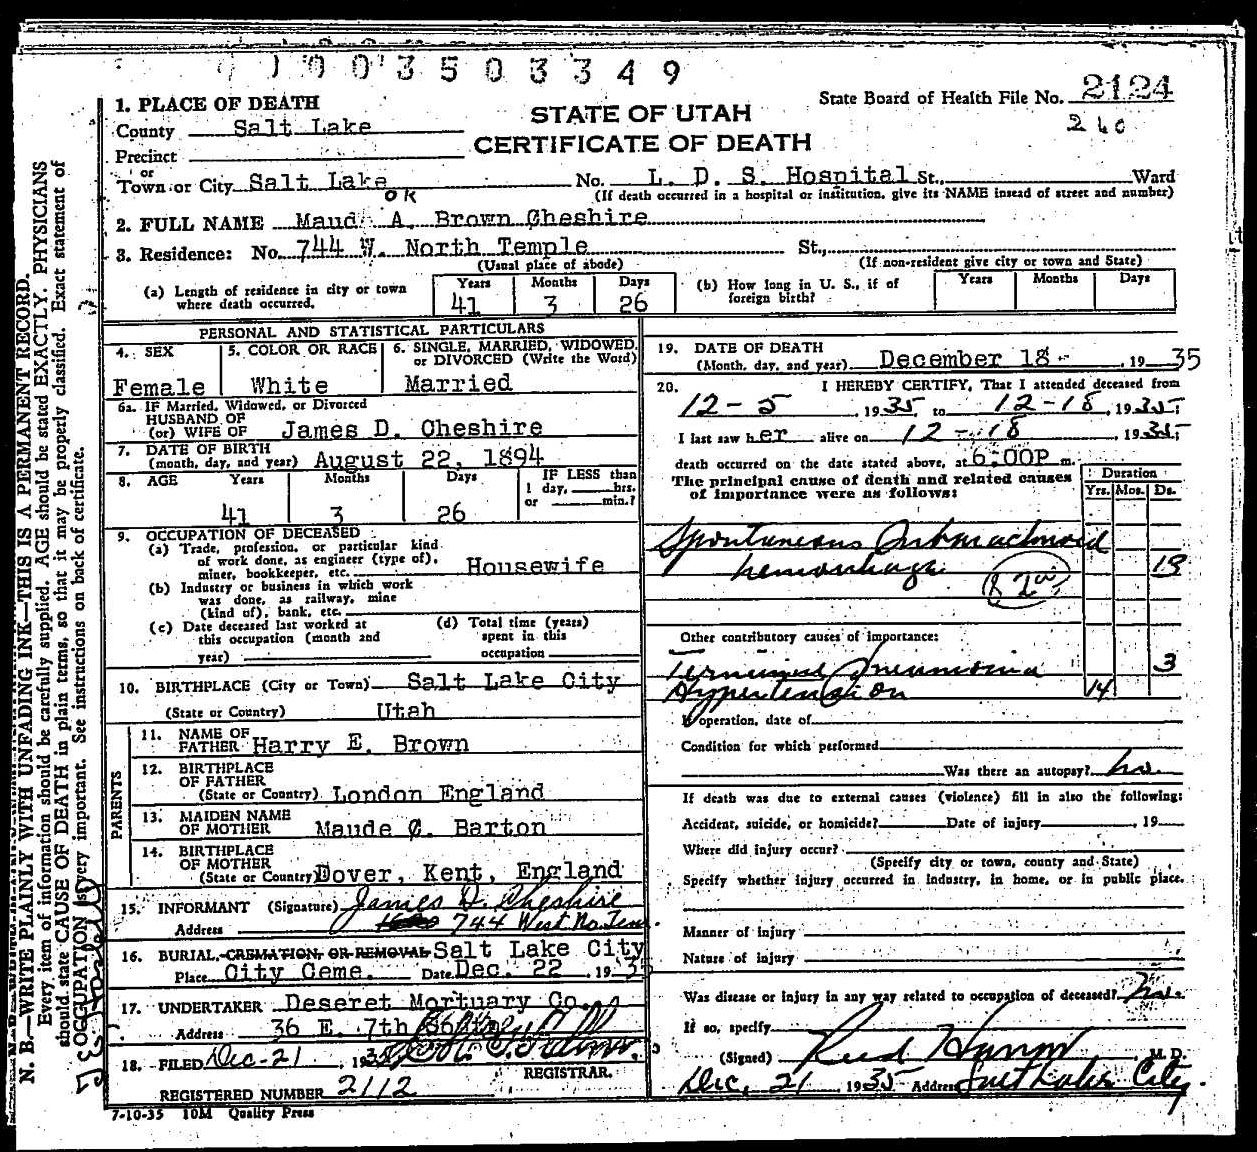 1003503349
STATE OF UTAH
CERTIFICATE OF DEATH
State Board of Health File No. 2124
260
1. PLACE OF DEATH
County Salt Lake
Precinct
or
Town or City Salt Lake No. L. D. S. Hospital St., Ward
(If death occurred in a hospital or institution, give its NAME insead of street and number)
OK
2. FULL NAME Maud A. Brown Cheshire
3. Residence: No. 744 W. North Temple St.,
(Usual place of abode) (If non-resident give city or town and State)
(a) Length of residence in city or town where death occurred. Years 41 Months 3 Days 26
(b) How long in U. S., if of foreign birth? Years Months Days
PERSONAL AND STATISTICAL PARTICULARS
4. SEX Female
5. COLOR OR RACE White
6. SINGLE, MARRIED, WIDOWED, or DIVORCED (Write the Word) Married
6a. IF Married, Widowed, or Divorced
HUSBAND OF
(or) WIFE OF James D. Cheshire
7. DATE OF BIRTH
(month, day, and year) August 22, 1894
8. AGE Years 41 Months 3 Days 26 IF LESS than 1 day, hrs. or min.?
9. OCCUPATION OF DECEASED
(a) Trade, profession, or particular kind
of work done, as engineer (type of),
miner, bookkeeper, etc. Housewife
(b) Industry or business in which work
was done, as railway, mine
(kind of), bank, etc.
(c) Date deceased last worked at
this occupation (month and
year)
(d) Total time (years)
spent in this
occupation
10. BIRTHPLACE (City or Town) Salt Lake City
(State or Country) Utah
PARENTS
11. NAME OF
FATHER Harry E. Brown
12. BIRTHPLACE
OF FATHER
(State or Country) London England
13. MAIDEN NAME
OF MOTHER Maude C. Barton
14. BIRTHPLACE
OF MOTHER
(State or Country) Dover, Kent, England
15. INFORMANT (Signature) James D. Cheshire
Address 744 West No. Tem.
16. BURIAL, CREMATION, OR REMOVAL Salt Lake City
Place City Ceme. Date Dec. 22, 1935
17. UNDERTAKER Deseret Mortuary Co.
Address 36 E. 7th South
18. FILED Dec-21, 1935
REGISTRAR.
REGISTERED NUMBER 2112
7-10-35 10M Quality Press
19. DATE OF DEATH
(Month, day, and year) December 18- 1935
20. I HEREBY CERTIFY, That I attended deceased from
12-5, 1935, to 12-18, 1935;
I last saw her alive on 12-18, 1935,
death occurred on the date stated above, at 6:00P m.
The principal cause of death and related causes
of importance were as follows:
Duration
Yrs. Mos. Ds.
Spontaneous Subarachnoid
hemorrhage 13
Other contributory causes of importance:
Terminal Pneumonia 3
Hypertension 14
If operation, date of
Condition for which performed
Was there an autopsy? no
If death was due to external causes (violence) fill in also the following:
Accident, suicide, or homicide? Date of injury , 19
Where did injury occur?
(Specify city or town, county and State)
Specify whether injury occurred in industry, in home, or in public place.
Manner of injury
Nature of injury
Was disease or injury in any way related to occupation of deceased? No.
If so, specify
(Signed) M. D.
Dec. 21 1935 Address Salt Lake City
N. B.—WRITE PLAINLY WITH UNFADING INK—THIS IS A PERMANENT RECORD.
Every item of information should be carefully supplied. AGE should be stated EXACTLY. PHYSICIANS
should state CAUSE OF DEATH in plain terms, so that it may be properly classified. Exact statement of
OCCUPATION is very important. See instructions on back of certificate.